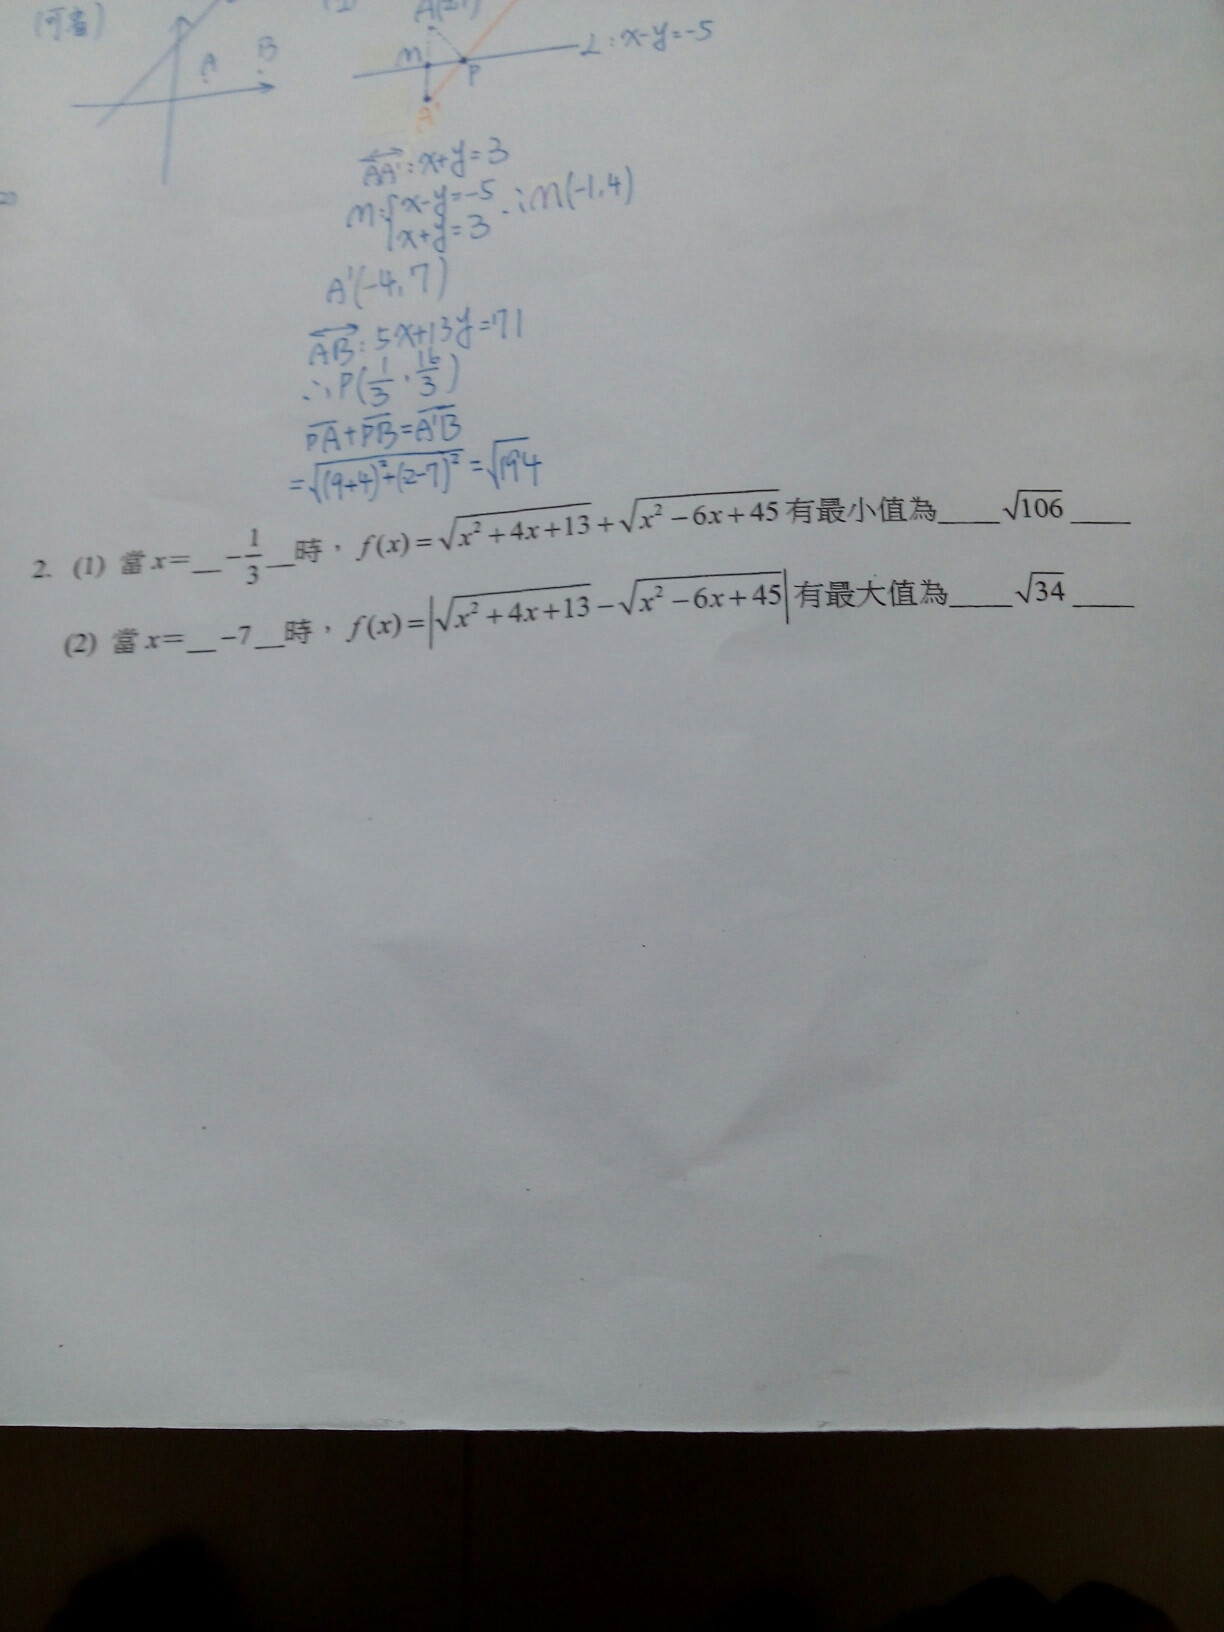 (可看)
A B
A(2,1)
M P L:x-y=-5
A'
AA':x+y=3
M:{x-y=-5
x+y=3 ∴M(-1,4)
A'(-4,7)
AB:5x+13y=71
∴P(1/3,16/3)
PA+PB=A'B
=√((9+4)²+(2-7)²)=√194
2. (1) 當x=__-1/3__時，f(x)=√(x²+4x+13)+√(x²-6x+45)有最小值為____√106____
(2) 當x=__-7__時，f(x)=|√(x²+4x+13)-√(x²-6x+45)|有最大值為____√34____